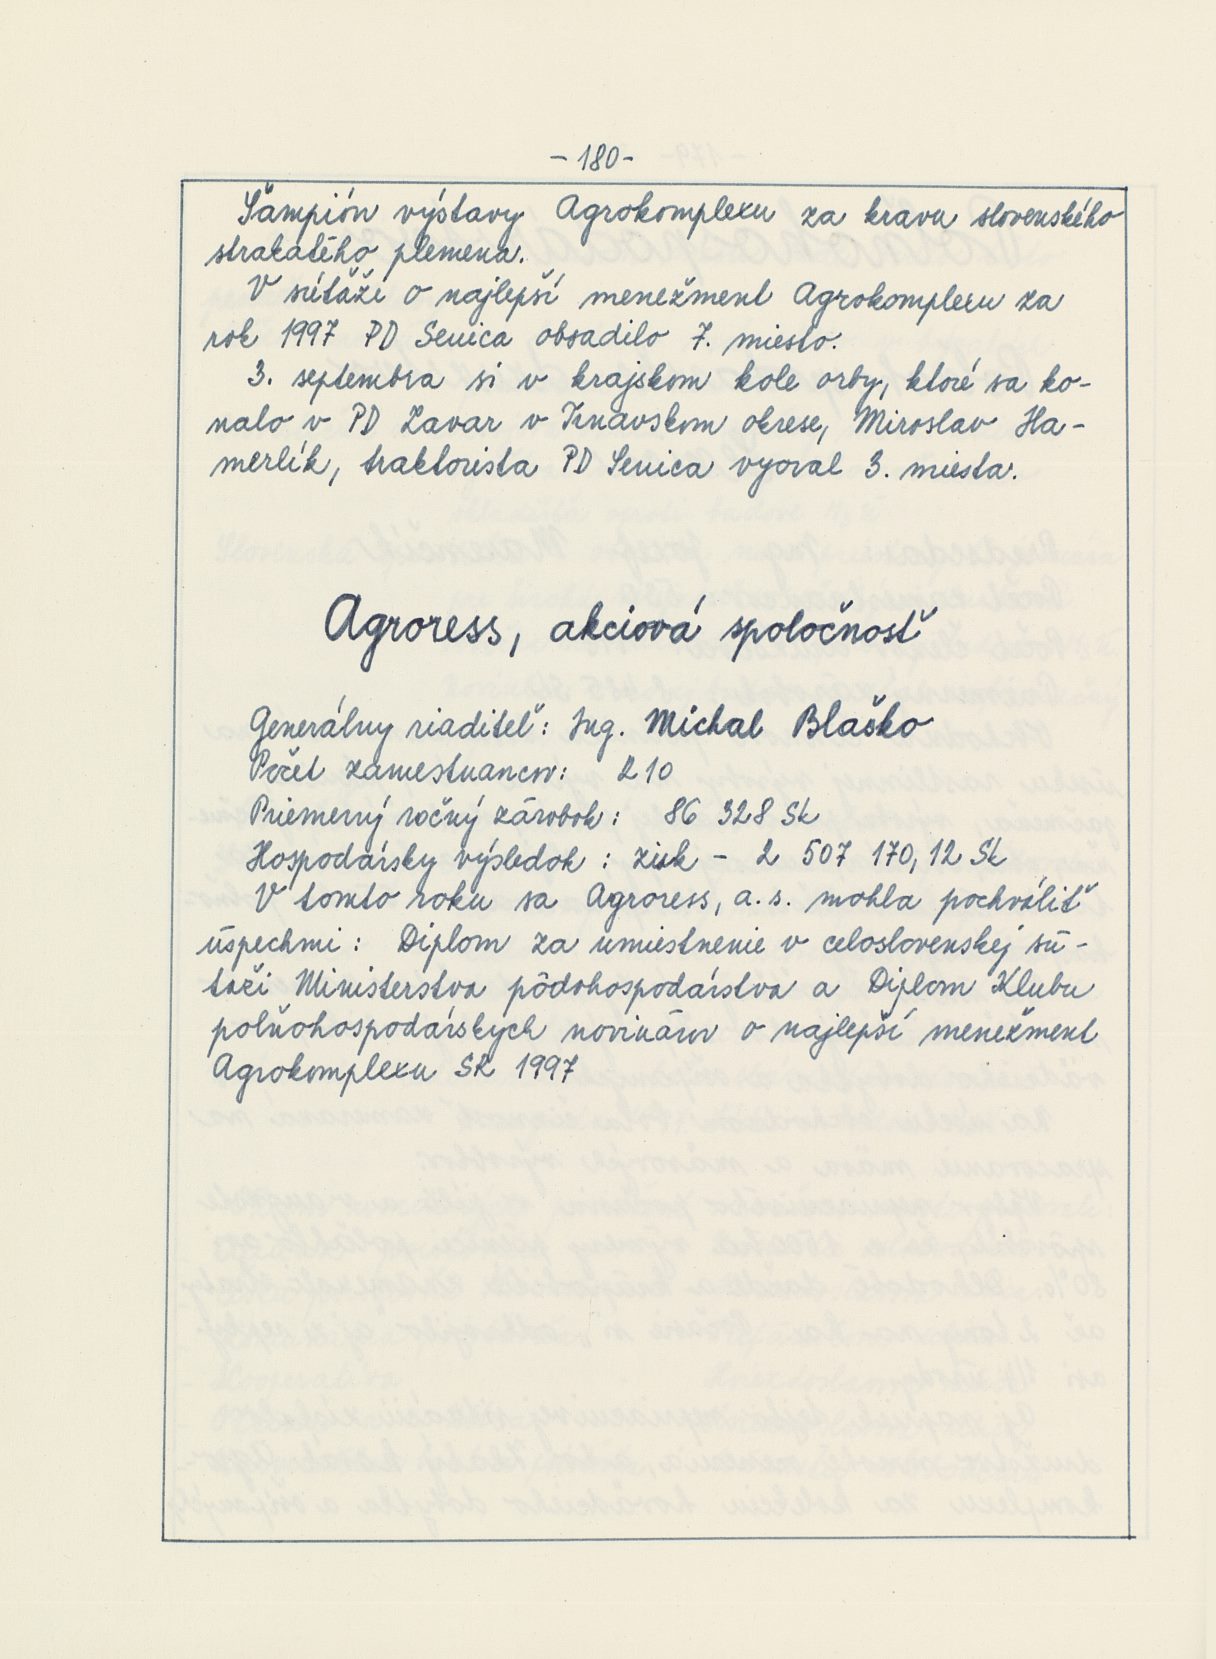 - 180 -
Šampión výstavy Agrokomplexu za kravu slovenského
strakatého plemena.
V súťaži o najlepší menežment Agrokomplexu za
rok 1997 PD Senica obsadilo 7. miesto.
3. septembra si v krajskom kole orby, ktoré sa ko-
nalo v PD Zavar v Trnavskom okrese, Miroslav Ha-
merlík, traktorista PD Senica vyoral 3. miesta.
Agroress, akciová spoločnosť
Generálny riaditeľ: Ing. Michal Blaško
Počet zamestnancov: 210
Priemerný ročný zárobok: 86 328 Sk
Hospodársky výsledok: zisk - 2 507 170,12 Sk
V tomto roku sa Agroress, a.s. mohla pochváliť
úspechmi: Diplom za umiestnenie v celoslovenskej sú-
ťaži Ministerstva pôdohospodárstva a Diplom Klubu
poľnohospodárskych novinárov o najlepší menežment
Agrokomplexu SR 1997